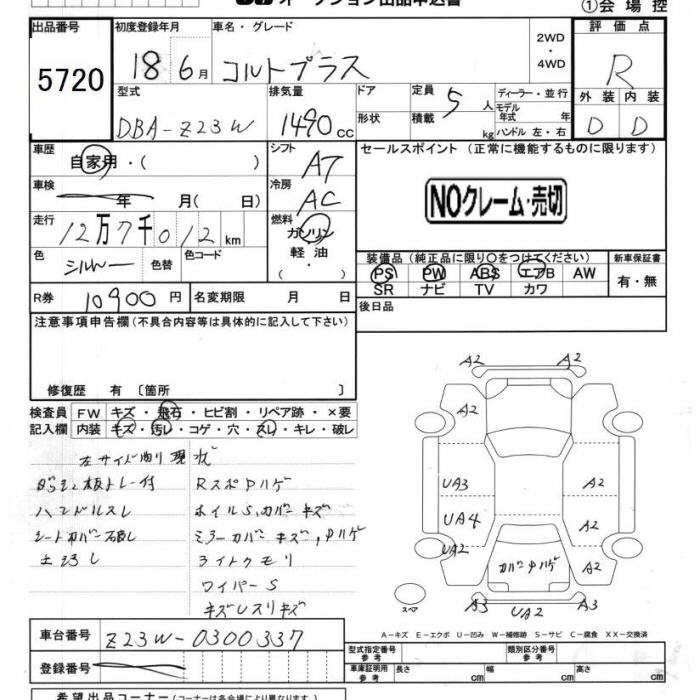 オークション出品申込書
①会場控
出品番号
5720
初度登録年月
18 6月
車名・グレード
コルトプラス
2WD
・
4WD
評価点
R
外装 内装
D D
型式
DBA-Z23W
排気量
1490 CC
ドア
形状
定員 5 人
積載 kg
ディーラー・並行
モデル
年式 年
ハンドル 左・右
車歴
自家用・( )
シフト
AT
車検
年 月( 日)
冷房
AC
走行
12万7千012km
燃料
ガソリン
・
軽油
( )
色
シルバー
色替
色コード
R券 10900円
名変期限 月 日
セールスポイント (正常に機能するものに限ります)
NOクレーム・売切
装備品 (純正品に限り○をつけてください)
PS PW ABS エアB AW
SR ナビ TV カワ
新車保証書
有・無
後日品
注意事項申告欄(不具合内容等は具体的に記入して下さい)
修復歴 有 〔箇所 〕
検査員
記入欄
FW キズ・飛石・ヒビ割・リペア跡・×要
内装 キズ・汚レ・コゲ・穴・スレ・キレ・破レ
左サイド内り現状
ハンドルスレ
シートカバー破レ
RスポPハゲ
ホイルS,カバーキズ
ミラーカバーキズ,Pハゲ
ライトクモリ
ワイパーS
A2
A2
A2
UA3
A2
UA4
UA2
A2
カバーPハゲ
A2
A3
UA2
A2
スペア
A－キズ E－エクボ U－凹み W－補修跡 S－サビ C－腐食 XX－交換済
車台番号
Z23W-0300337
登録番号
型式指定番号
参考
類別区分番号
参考
車庫証明用
参考
長さ cm
幅 cm
高さ cm
希望出品コーナー(コーナーは各会場により異なります)